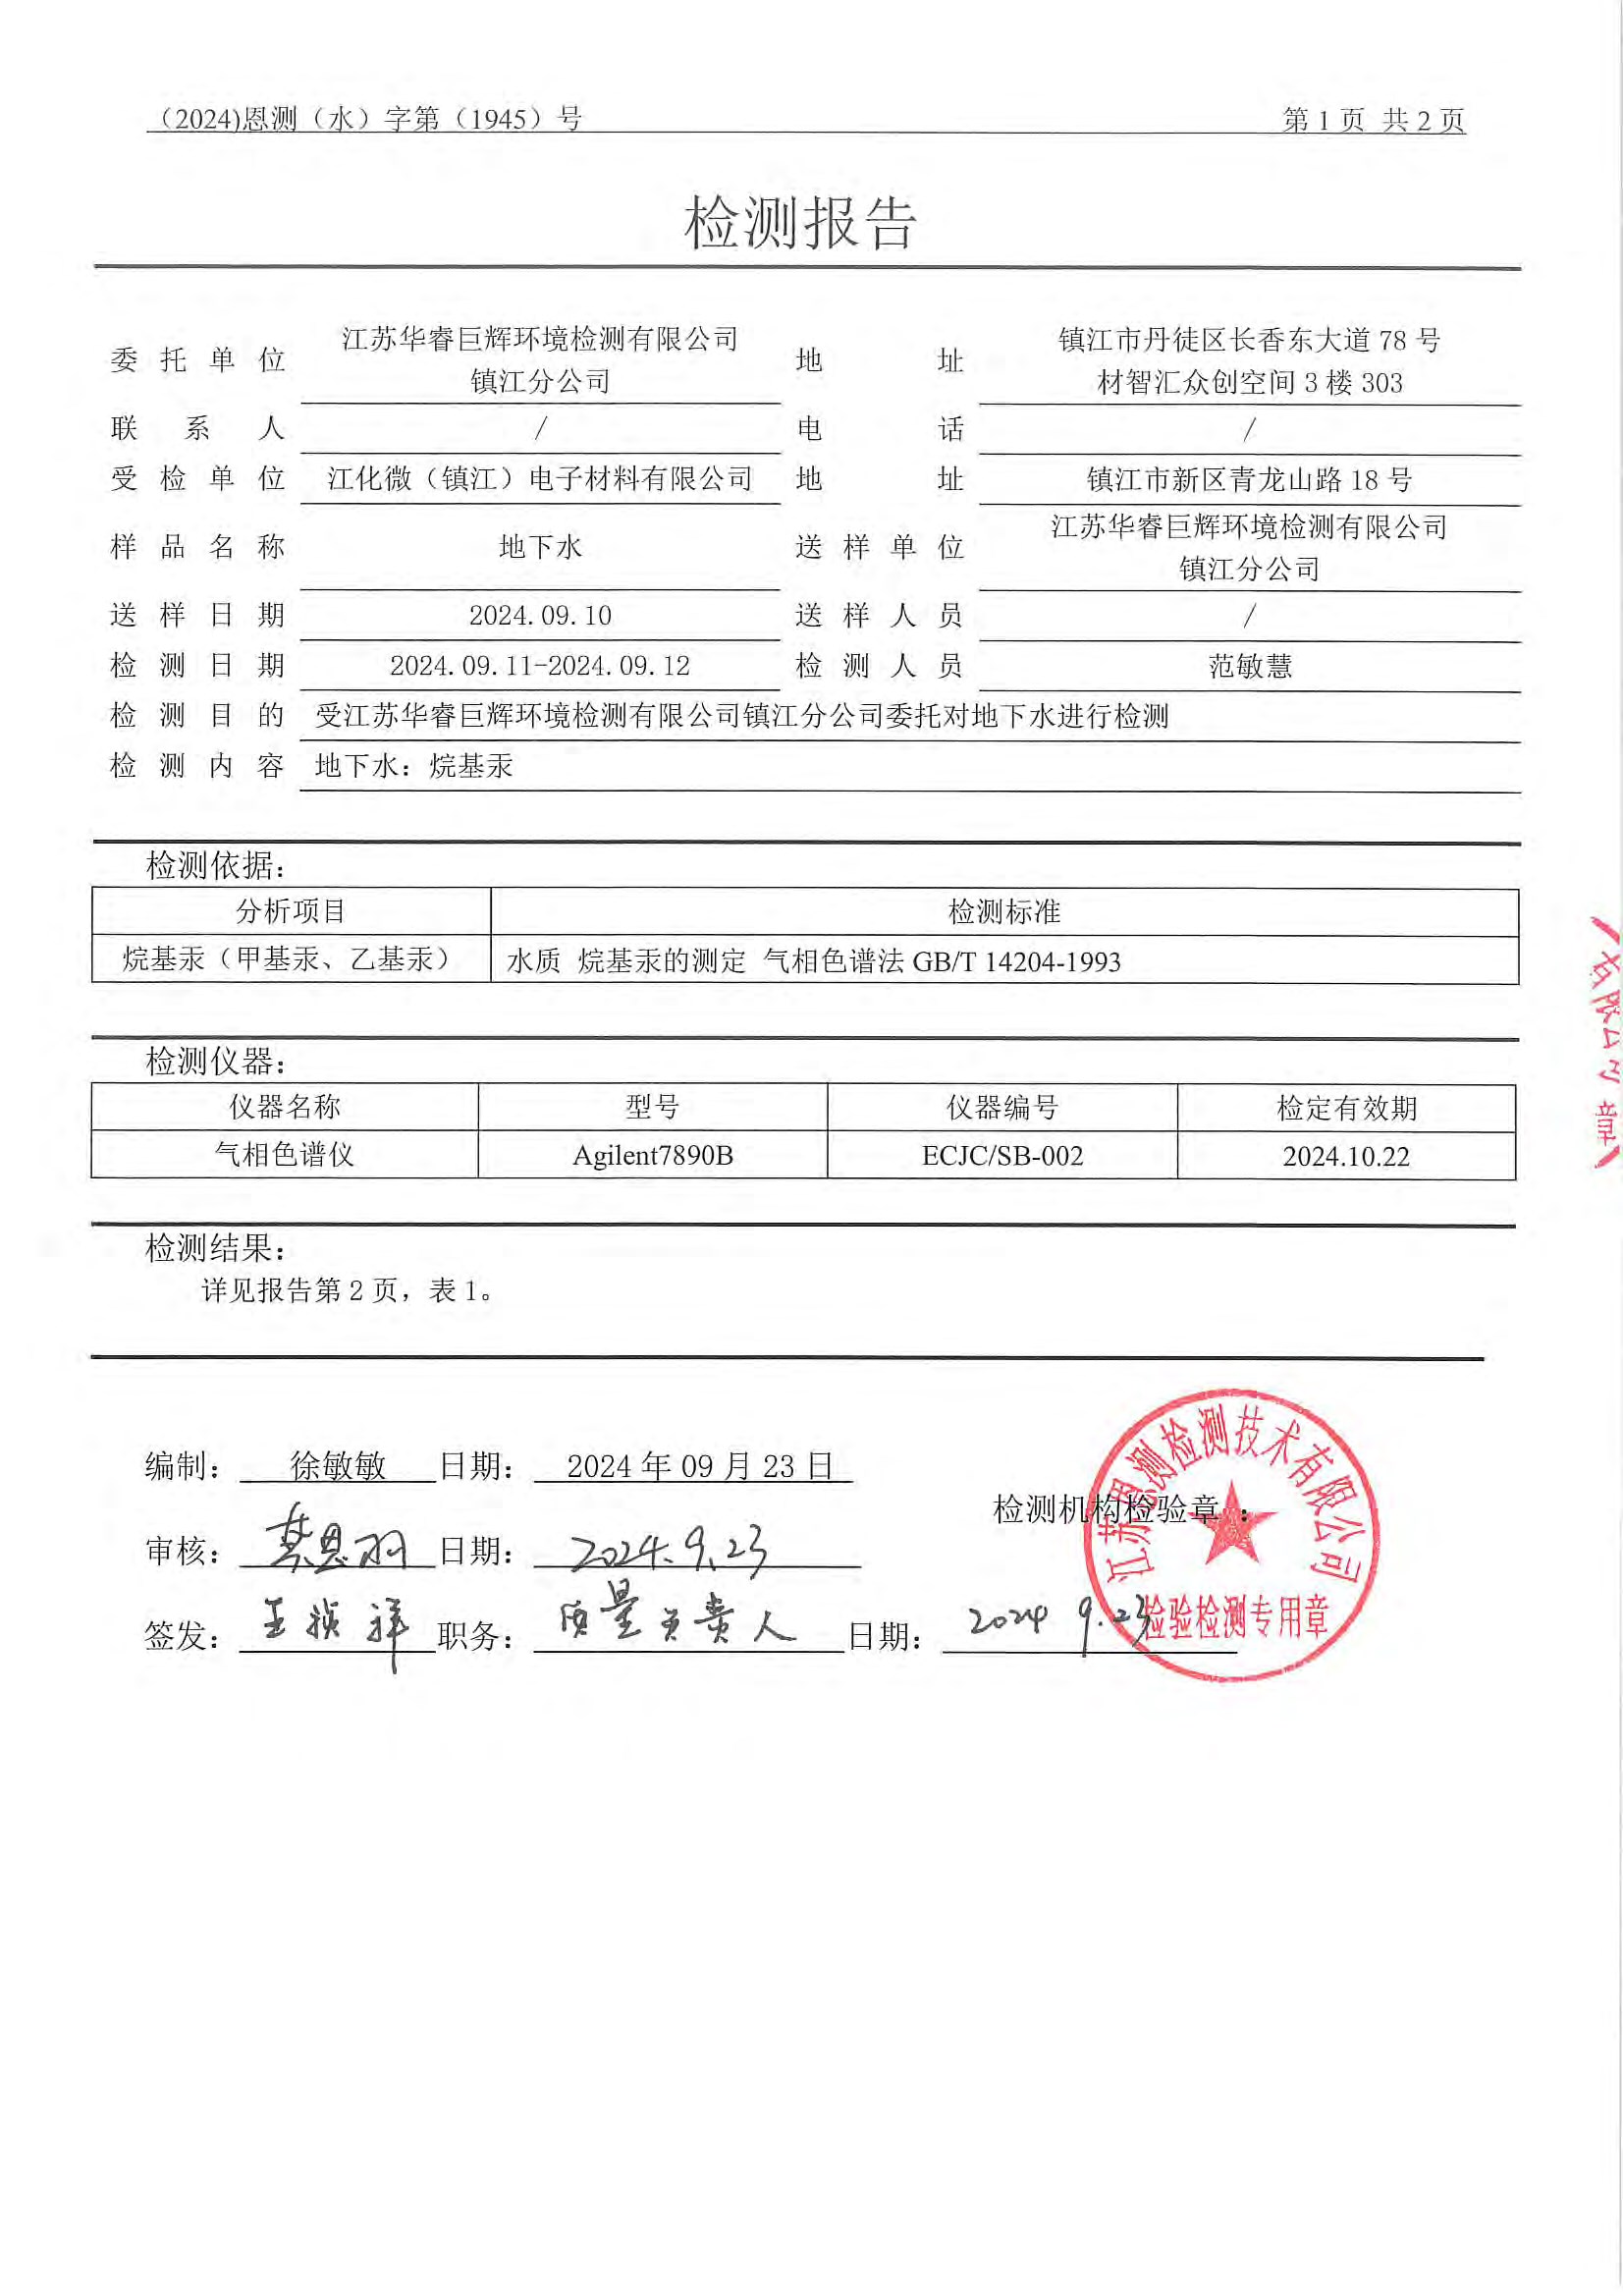 （2024)恩测（水）字第（1945）号 第 1 页 共 2 页
检测报告
委托单位 江苏华睿巨辉环境检测有限公司镇江分公司 地址 镇江市丹徒区长香东大道 78 号材智汇众创空间 3 楼 303
联系人 / 电话 /
受检单位 江化微（镇江）电子材料有限公司 地址 镇江市新区青龙山路 18 号
样品名称 地下水 送样单位 江苏华睿巨辉环境检测有限公司镇江分公司
送样日期 2024.09.10 送样人员 /
检测日期 2024.09.11-2024.09.12 检测人员 范敏慧
检测目的 受江苏华睿巨辉环境检测有限公司镇江分公司委托对地下水进行检测
检测内容 地下水：烷基汞
检测依据：
分析项目 检测标准
烷基汞（甲基汞、乙基汞） 水质 烷基汞的测定 气相色谱法 GB/T 14204-1993
检测仪器：
仪器名称 型号 仪器编号 检定有效期
气相色谱仪 Agilent7890B ECJC/SB-002 2024.10.22
检测结果：
详见报告第 2 页，表 1。
编制： 徐敏敏 日期： 2024 年 09 月 23 日
检测机构检验章：
审核： 日期： 2024.9.23
签发： 王祯祥 职务： 质量负责人 日期： 2024 9.23
江苏恩测检测技术有限公司
检验检测专用章